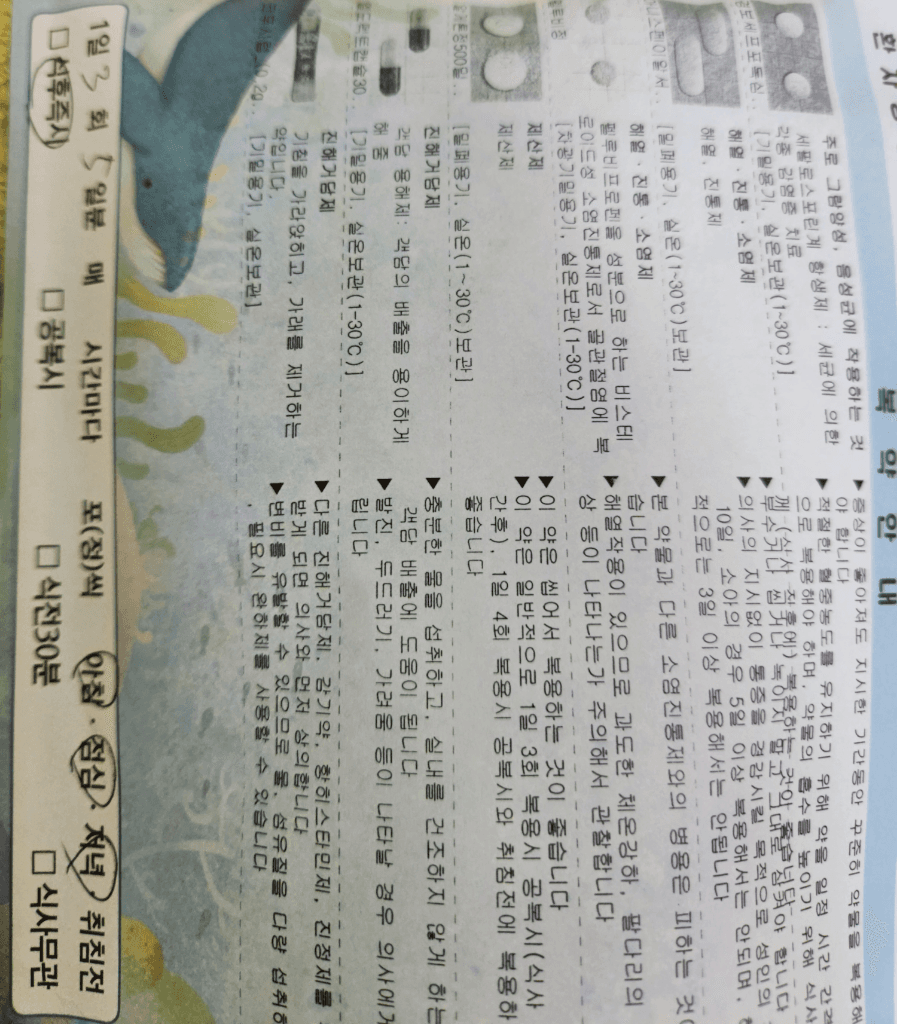 환 자
복 약 안 내
주로 그람양성, 음성균에 작용하는 것
세팔로스포린계 항생제 : 세균에 의한
각종 감염증 치료
[기밀용기, 실온보관(1~30℃)]
▶ 증상이 좋아져도 지시한 기간동안 꾸준히 약물을 복용해
야 합니다
▶ 적절한 혈중농도를 유지하기 위해 약을 일정 시간 간격
으로 복용해야 하며, 약물의 흡수를 높이기 위해 식사
해열·진통·소염제
해열, 진통제
[밀폐용기, 실온(1~30℃)보관]
▶ 의사의 지시없이 통증을 경감시킬 목적으로 성인의
10일, 소아의 경우 5일 이상 복용해서는 안되며,
적으로는 3일 이상 복용해서는 안됩니다
해열·진통·소염제
펠루비프로펜을 성분으로 하는 비스테
로이드성 소염진통제로서 골관절염에 복
[차광기밀용기, 실온보관(1-30℃)]
▶ 본 약물과 다른 소염진통제와의 병용은 피하는 것
습니다
▶ 해열작용이 있으므로 과도한 체온강하, 팔다리의
상 등이 나타나는가 주의해서 관찰합니다
제산제
제산제
[밀폐용기, 실온(1~30℃)보관]
▶ 이 약은 씹어서 복용하는 것이 좋습니다
▶ 이 약은 일반적으로 1일 3회 복용시 공복시(식사
간후), 1일 4회 복용시 공복시와 취침전에 복용하
좋습니다
진해거담제
객담 용해제: 객담의 배출을 용이하게
해 줌
[기밀용기, 실온보관(1-30℃)]
▶ 충분한 물을 섭취하고, 실내를 건조하지 않게 하는
객담 배출에 도움이 됩니다
▶ 발진, 두드러기, 가려움 등이 나타날 경우 의사에게
립니다
진해거담제
기침을 가라앉히고, 가래를 제거하는
약입니다.
[기밀용기, 실온보관]
▶ 다른 진해거담제, 감기약, 항히스타민제, 진정제를
받게 되면 의사와 먼저 상의합니다
▶ 변비를 유발할 수 있으므로 물, 섬유질을 다량 섭취하
, 필요시 완하제를 사용할 수 있습니다
1일 3 회 5 일분 매 시간마다 포(정)씩 아침·점심·저녁, 취침전
□ 식후즉시 □ 공복시 □ 식전30분 □ 식사무관